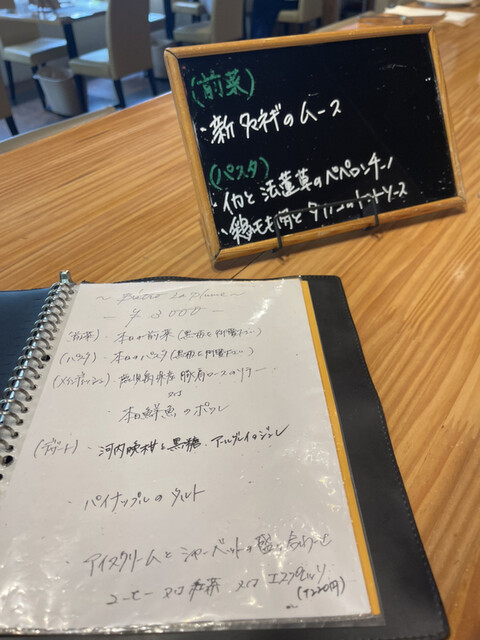 (前菜)
・新タマネギのムース
(パスタ)
・イカと法蓮草のペペロンチーノ
・鶏モモ肉と ソース
~ Bistro La ~
- ¥3000 -
(前菜)・本日の前菜(黒板を御覧下さい)
(パスタ)・本日のパスタ(黒板を御覧下さい)
(メインディッシュ)・鹿児島県産豚肩ロースのソテー
又は
本日鮮魚のポワレ
(デザート)・河内晩柑と黒糖、アールグレイのジュレ
・パイナップルのタルト
・アイスクリームとシャーベットの盛り合わせ
コーヒー 又は 紅茶 又は エスプレッソ
(+220円)